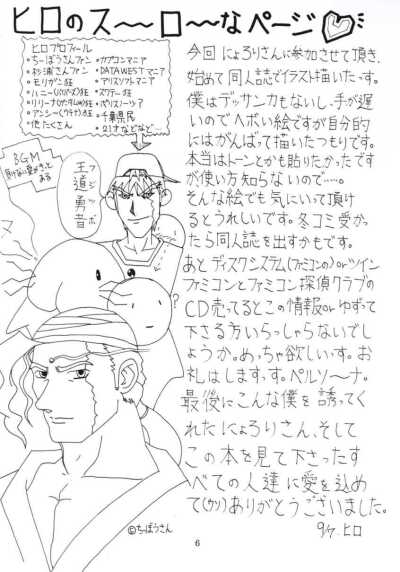 ヒロのス〜ロ〜なページ
ヒロプロフィール
・ちーぼうさんファン
・杉浦さんファン
・モリガン狂
・カプコンマニア
・DATAWESTマニア
・アリスソフトマニア
・千葉県民
・21才などなど…
・他たくさん
BGM
王道勇者
今回にょろりさんに参加させて頂き、
始めて同人誌でイラスト描いたっす。
僕はデッサン力もないし、手が遅
いのでヘボい絵ですが自分的
にはがんばって描いたつもりです。
本当はトーンとかも貼りたかったです
が使い方知らないので……。
そんな絵でも気にいって頂け
るとうれしいです。冬コミ受かっ
たら同人誌を出すかもです。
あとディスクシステム(ファミコンの)orツイン
ファミコンとファミコン探偵クラブの
CD売ってるとこの情報orゆずって
下さる方いらっしゃらないでし
ょうか。めっちゃ欲しいっす。お
礼はしますっす。ペルソ〜ナ。
最後にこんな僕を誘ってく
れたにょろりさん、そして
この本を見て下さったす
べての人達に愛を込め
て(ウソ)ありがとうございました。
9/7 ヒロ
?
©ちーぼうさん
6